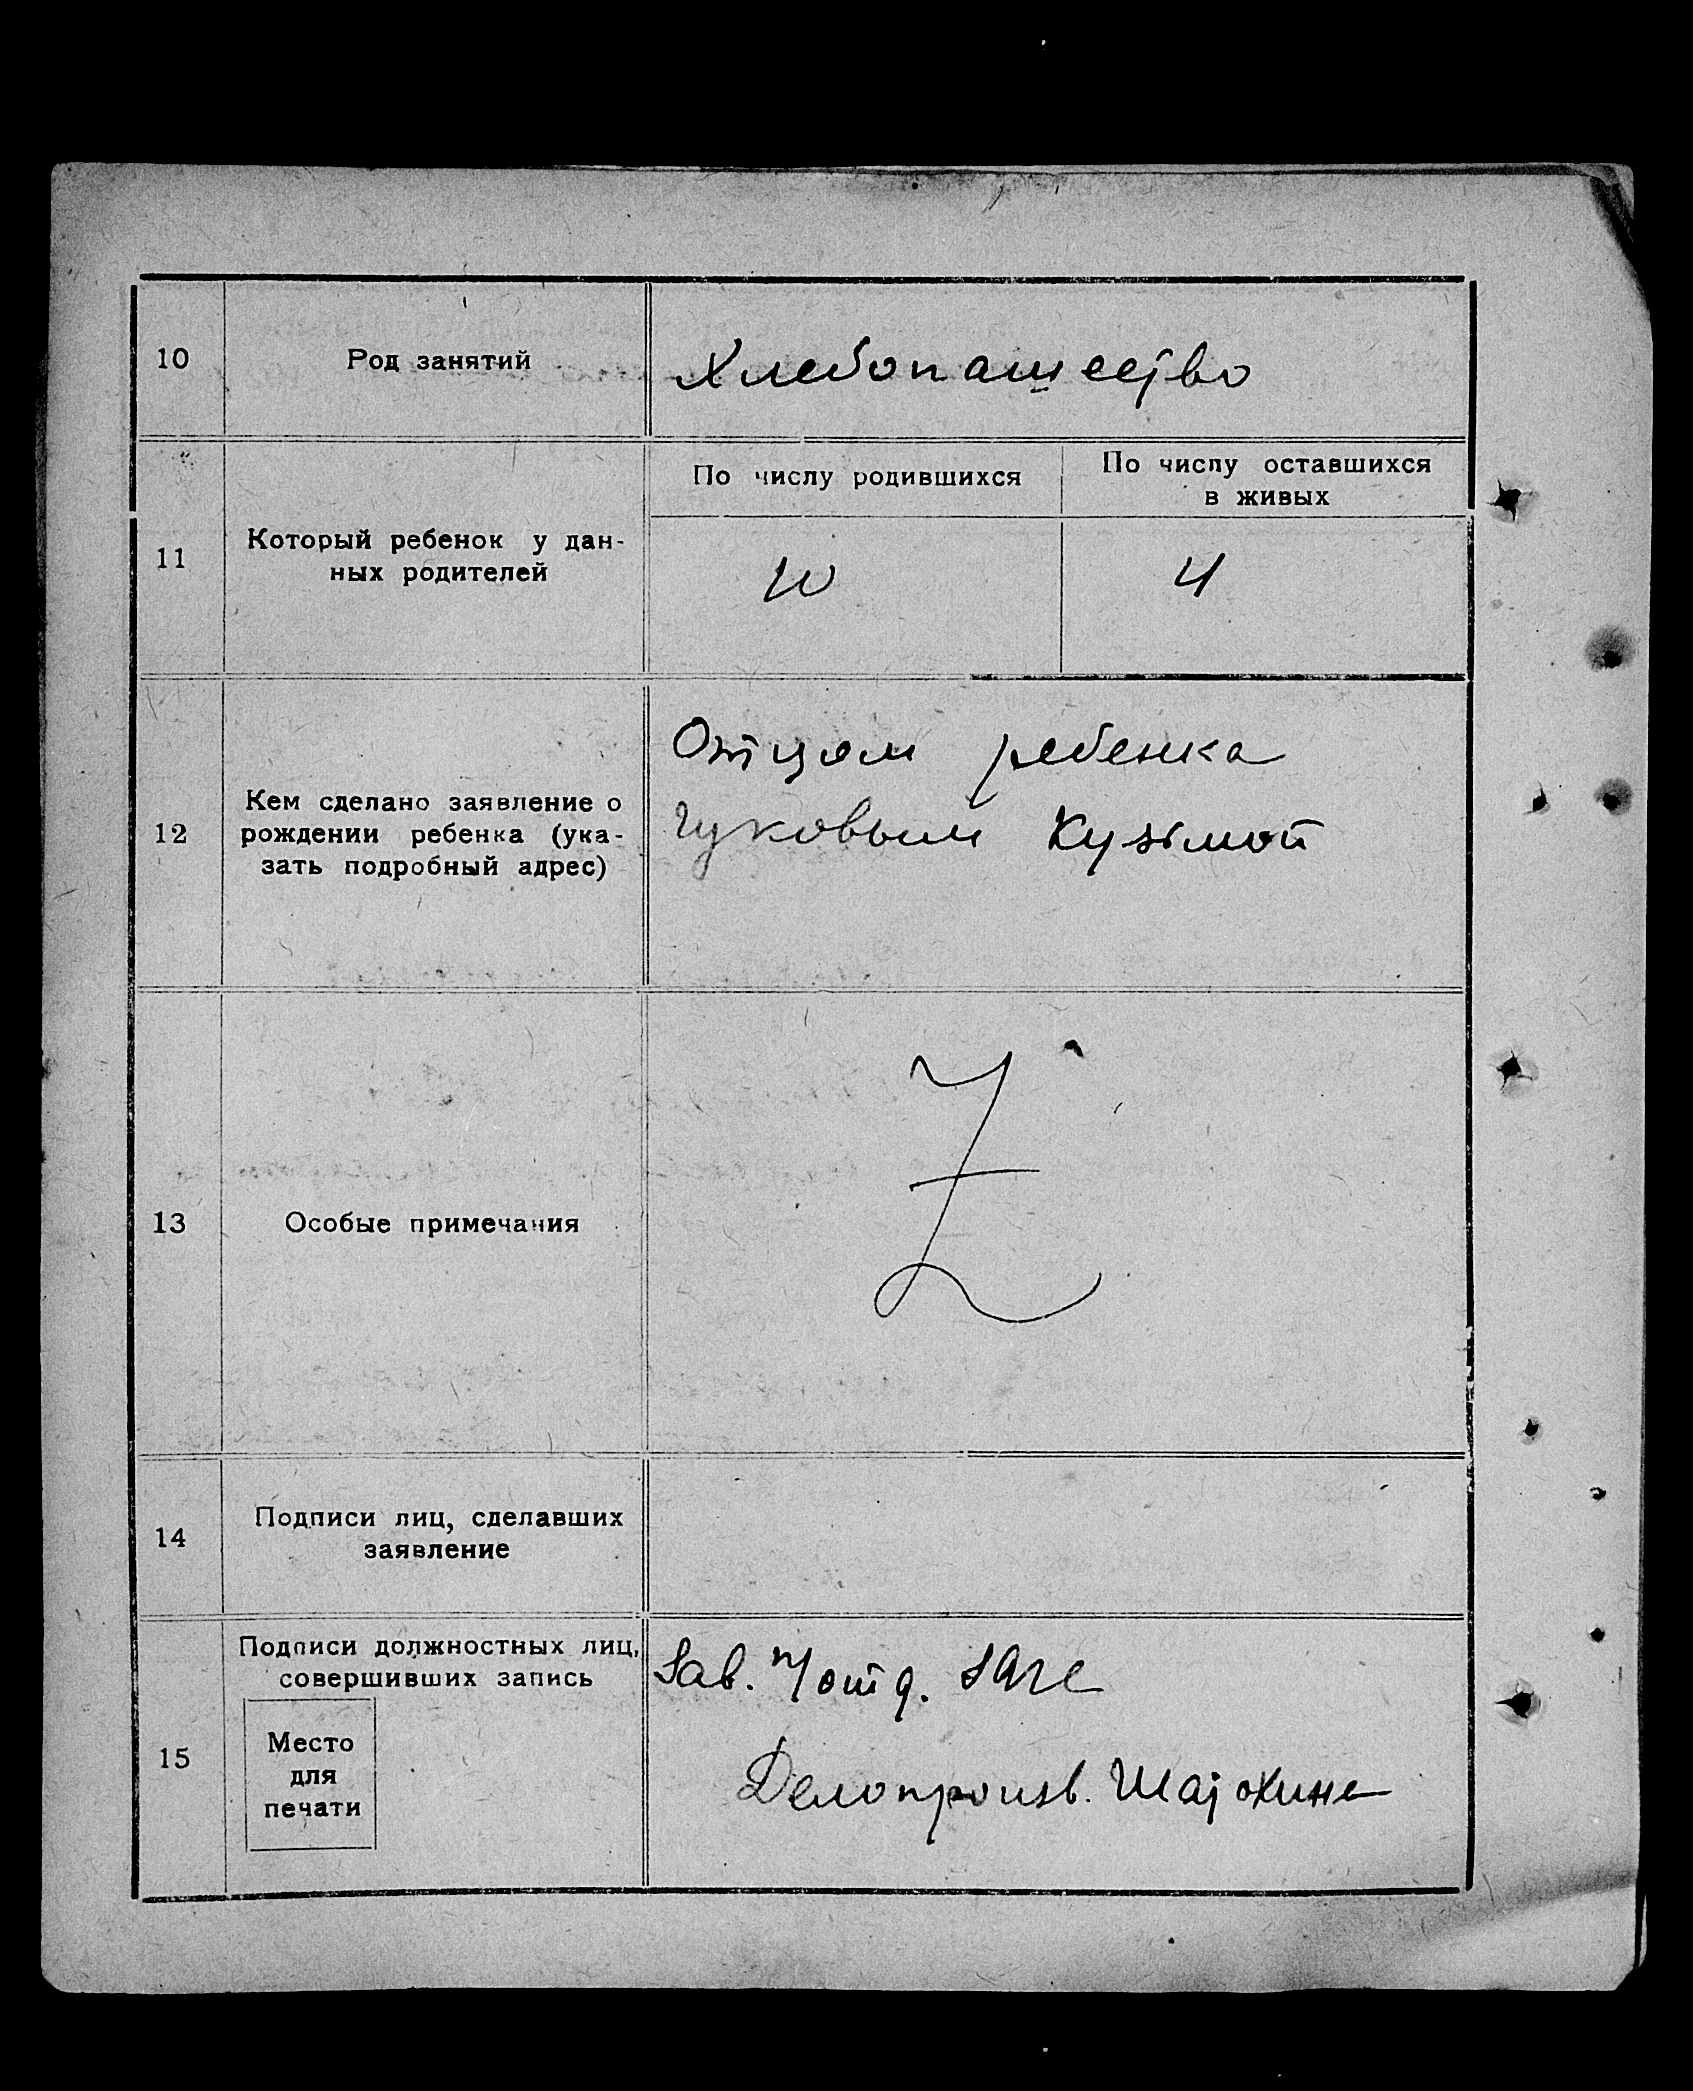 10
Род занятий
Хлебопашество
11
Который ребенок у дан-
ных родителей
По числу родившихся
По числу оставшихся
в живых
10
4
12
Кем сделано заявление о
рождении ребенка (ука-
зать подробный адрес)
Отцом ребенка
Чуковым Кузьмой
13
Особые примечания
Z
14
Подписи лиц, сделавших
заявление
15
Подписи должностных лиц,
совершивших запись
Место
для
печати
Зав. п/отд. загс
Делопроизв.